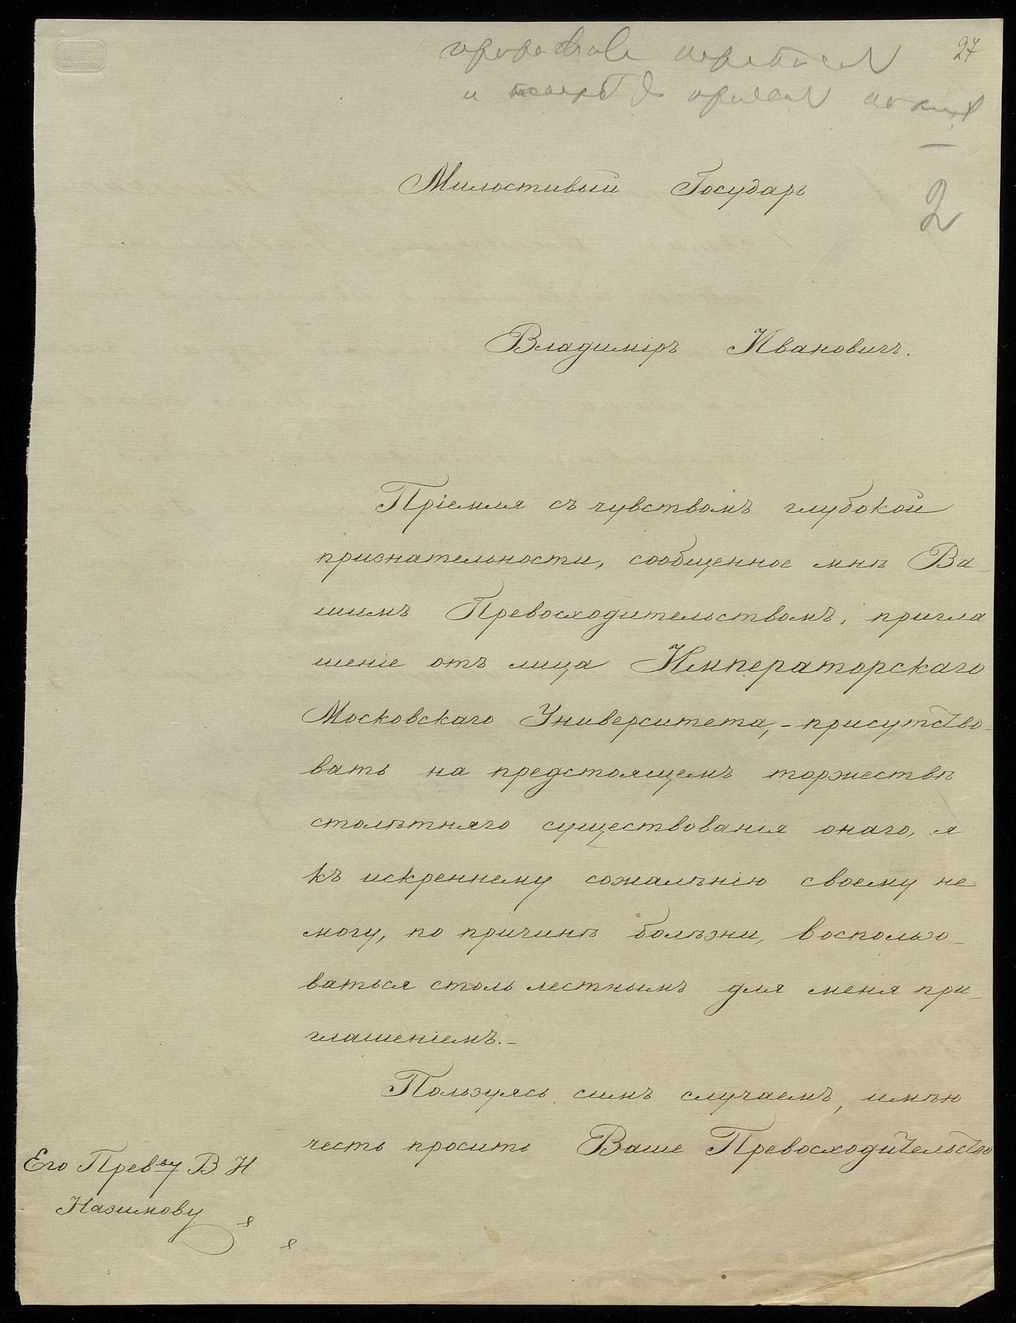 27
2
Милостивый Государь
Владиміръ Ивановичъ.
Пріемля съ чувствомъ глубокой
признательности, сообщенное мнѣ Ва-
шимъ Превосходительствомъ, пригла
шеніе отъ лица Императорскаго
Московскаго Университета, - присутство-
вать на предстоящемъ торжествѣ
столѣтняго существованія онаго, я
къ искреннему сожалѣнію своему не
могу, по причинѣ болѣзни, воспользо-
ваться столь лестнымъ для меня при-
глашеніемъ. -
Пользуясь симъ случаемъ, имѣю
честь просить Ваше Превосходительство
Его Превву В И
Назимову